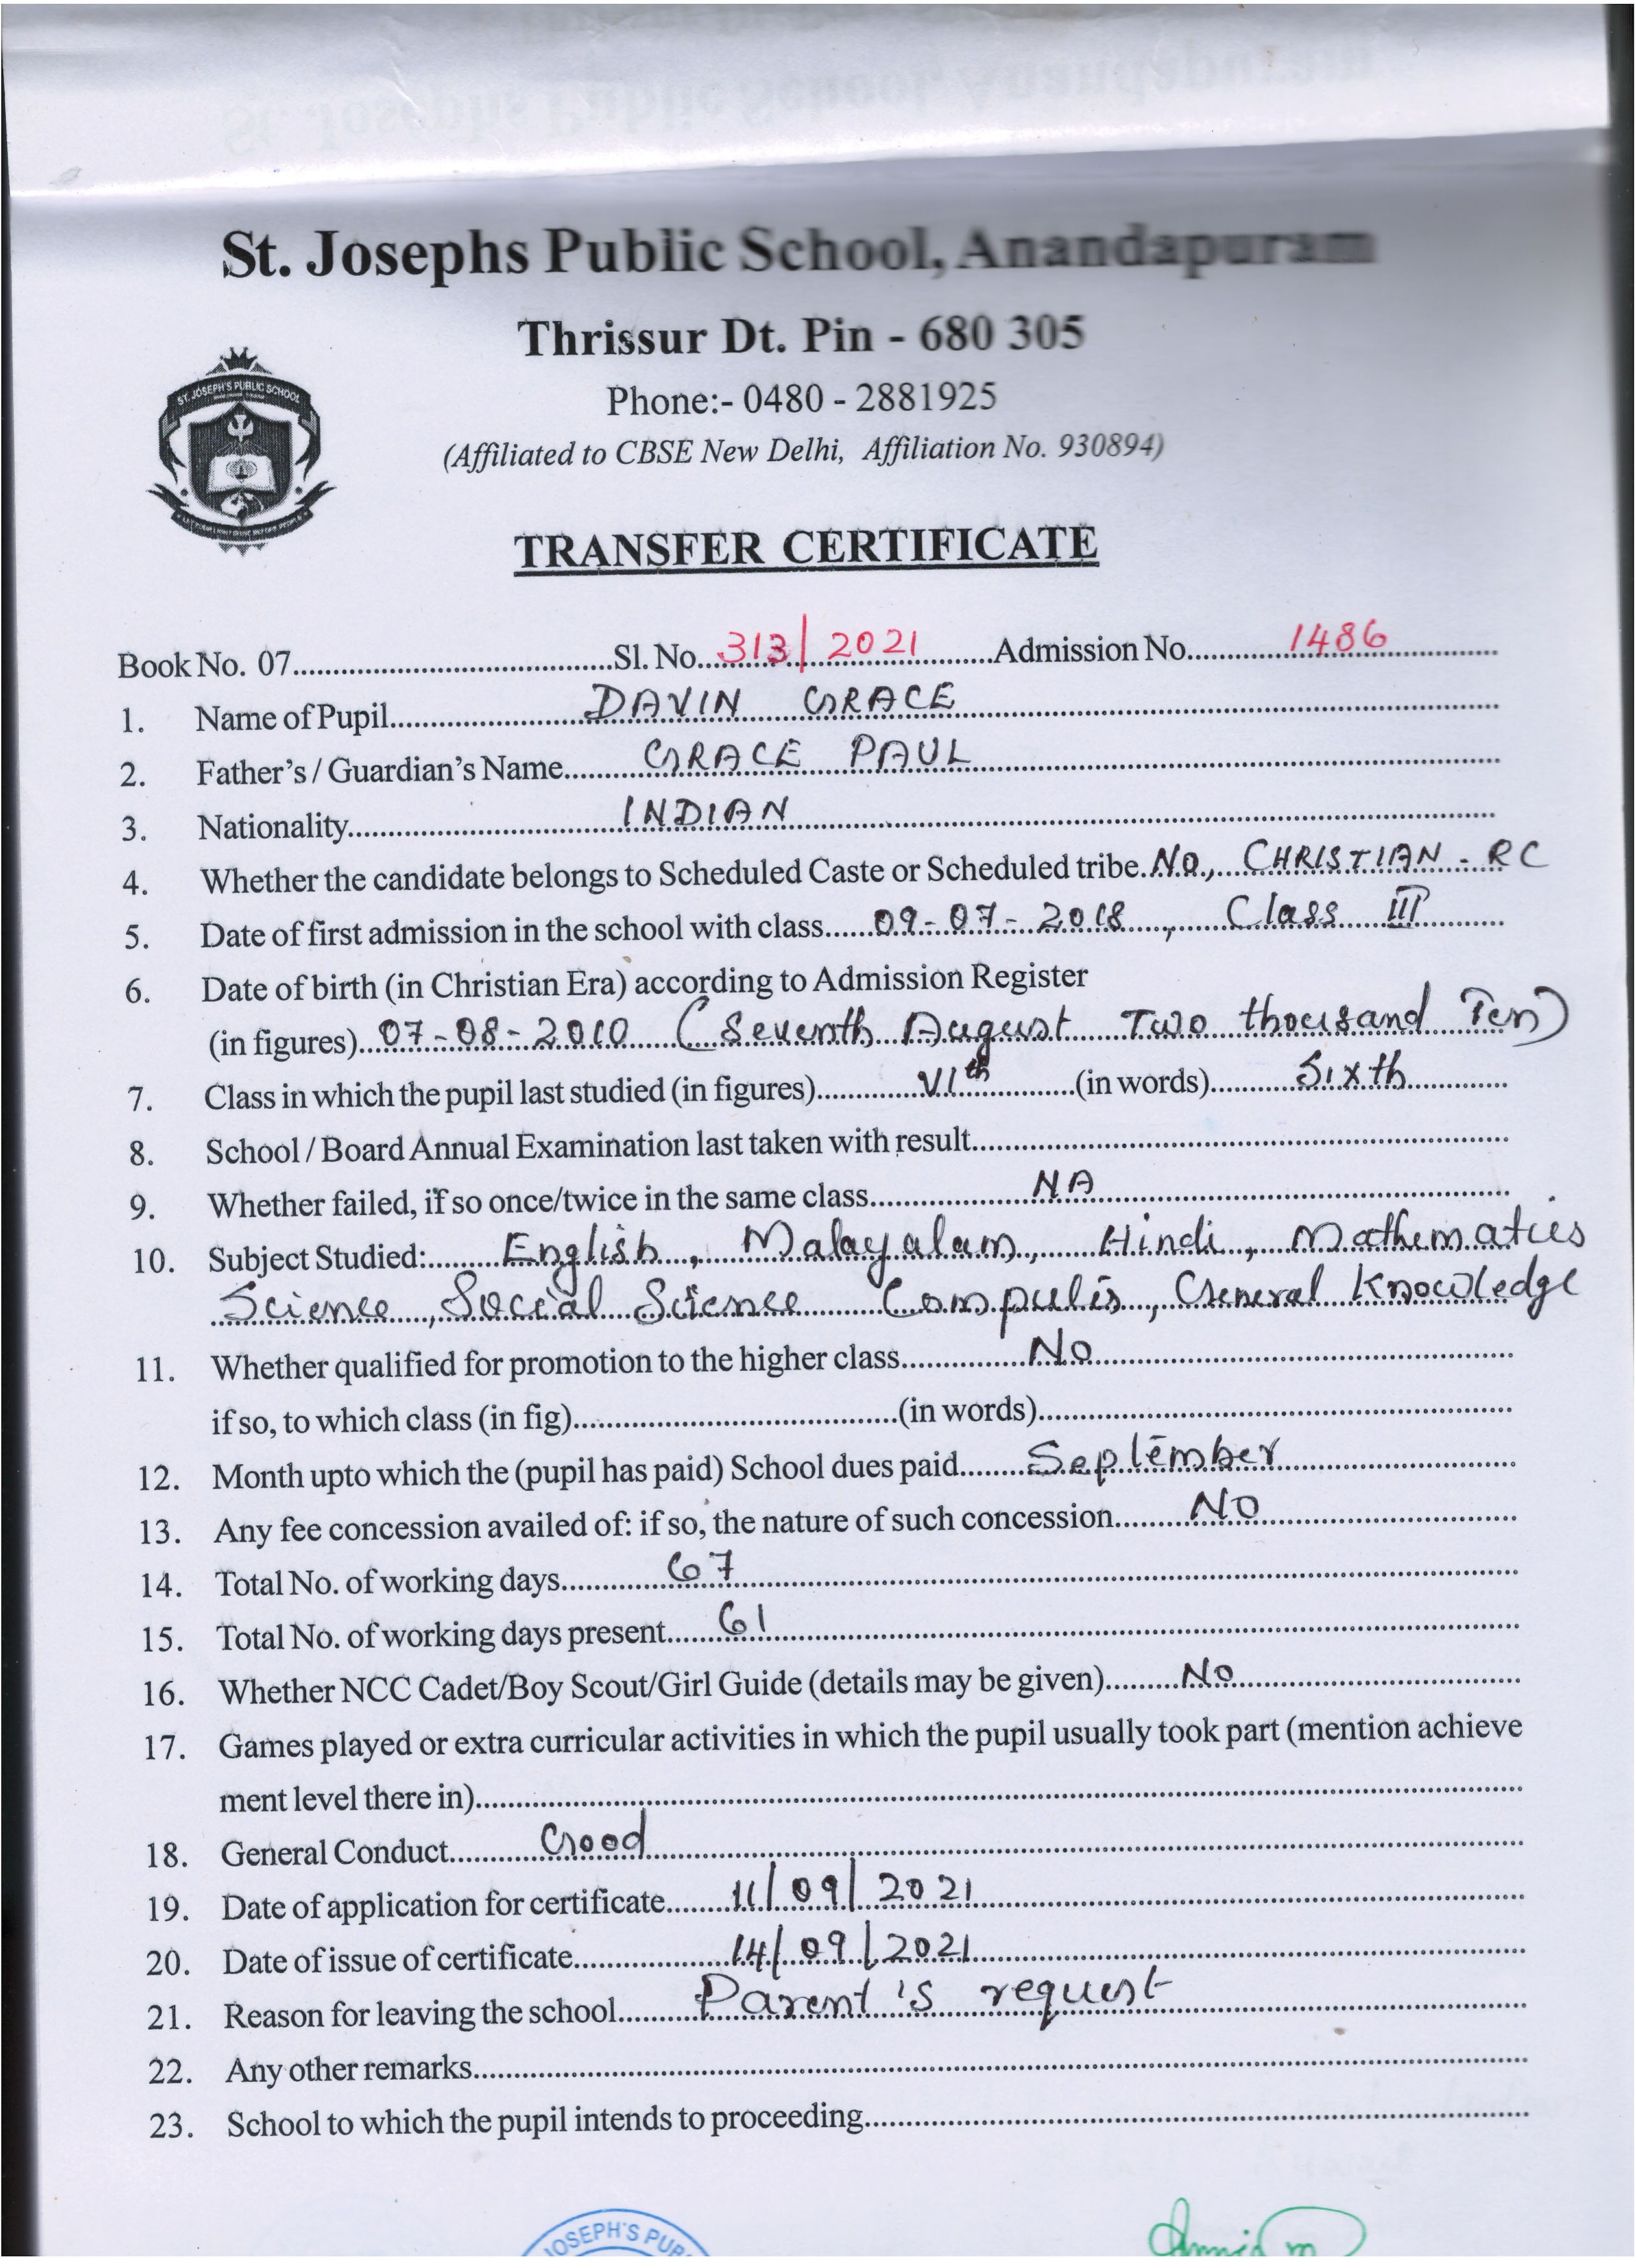 St. Josephs Public School, Anandapuram
Thrissur Dt. Pin - 680 305
Phone:- 0480 - 2881925
(Affiliated to CBSE New Delhi, Affiliation No. 930894)
ST. JOSEPH'S PUBLIC SCHOOL
TRANSFER CERTIFICATE
Book No. 07 Sl. No. 313/2021 Admission No. 1486
1. Name of Pupil DAVIN GRACE
2. Father's / Guardian's Name GRACE PAUL
3. Nationality INDIAN
4. Whether the candidate belongs to Scheduled Caste or Scheduled tribe. No, CHRISTIAN - RC
5. Date of first admission in the school with class 09-07-2018, Class III
6. Date of birth (in Christian Era) according to Admission Register
(in figures) 07-08-2010 (Seventh August Two thousand Ten)
7. Class in which the pupil last studied (in figures) VIth (in words) Sixth
8. School / Board Annual Examination last taken with result
9. Whether failed, if so once/twice in the same class NA
10. Subject Studied: English, Malayalam, Hindi, Mathematics
Science, Social Science Computer, General Knowledge
11. Whether qualified for promotion to the higher class No
if so, to which class (in fig) (in words)
12. Month upto which the (pupil has paid) School dues paid September
13. Any fee concession availed of: if so, the nature of such concession NO
14. Total No. of working days 67
15. Total No. of working days present 61
16. Whether NCC Cadet/Boy Scout/Girl Guide (details may be given) No
17. Games played or extra curricular activities in which the pupil usually took part (mention achieve
ment level there in)
18. General Conduct Good
19. Date of application for certificate 11/09/2021
20. Date of issue of certificate 14/09/2021
21. Reason for leaving the school Parent's request
22. Any other remarks
23. School to which the pupil intends to proceeding
JOSEPH'S PUB